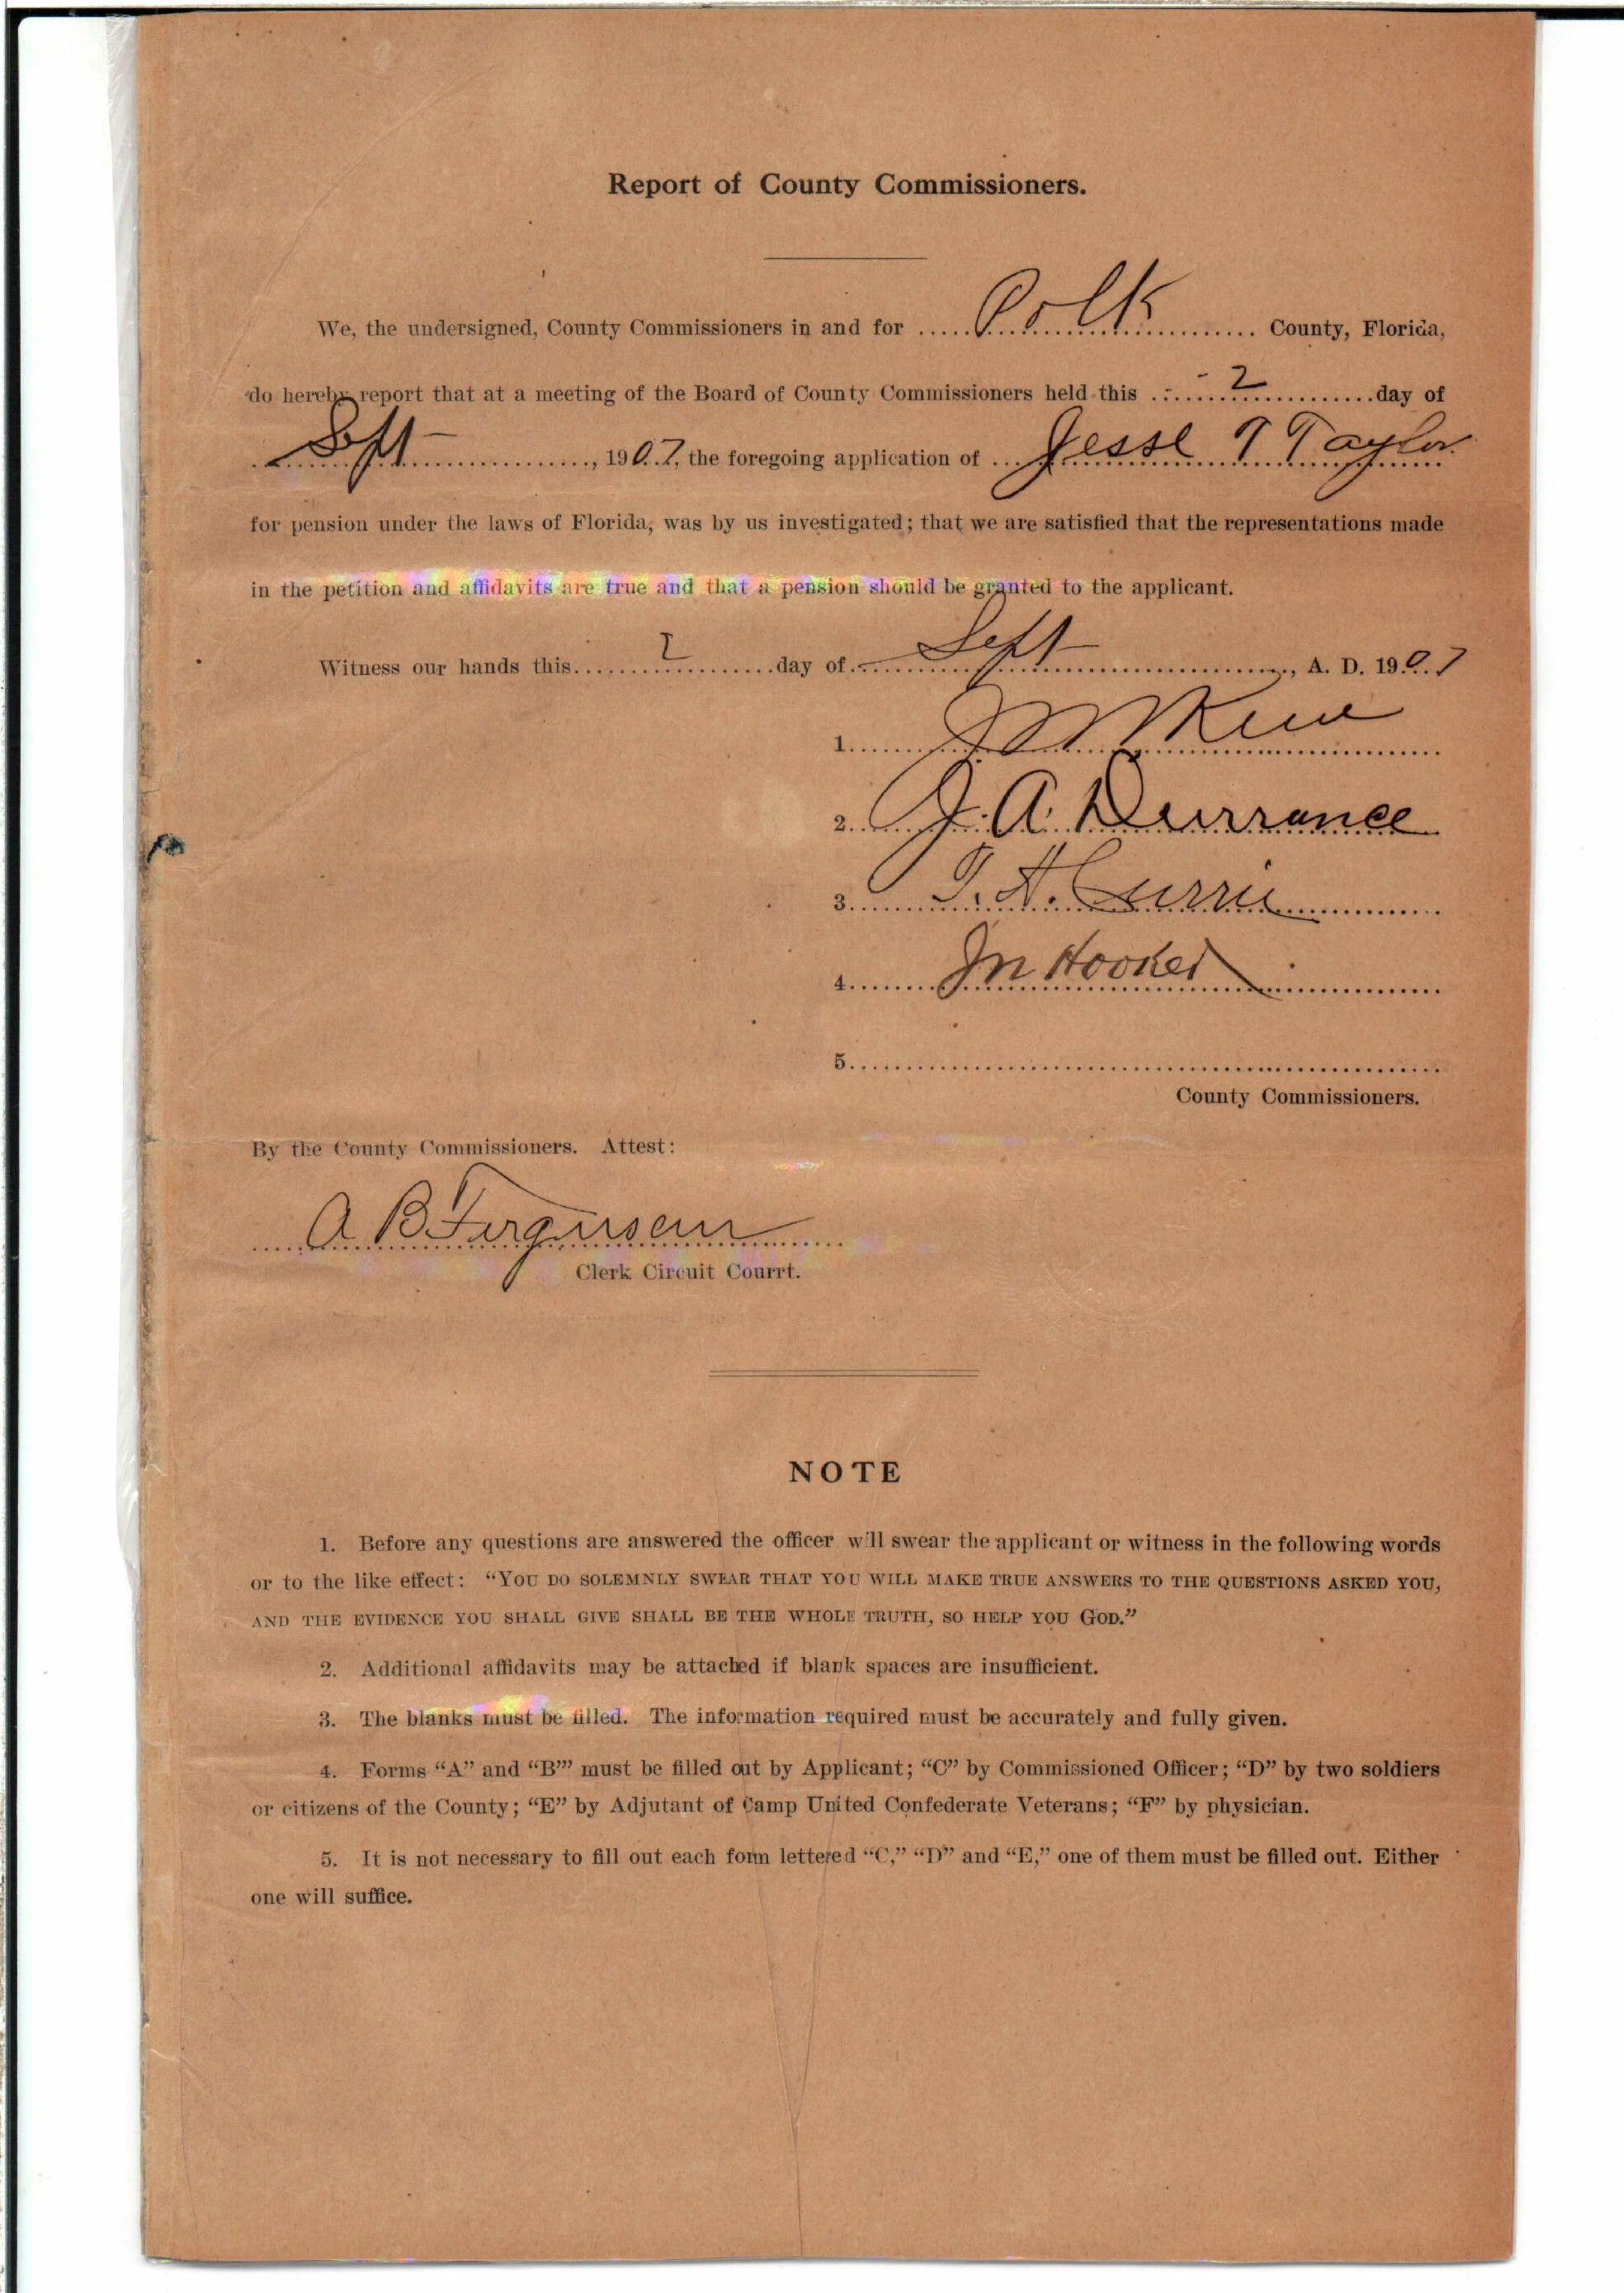 Report of County Commissioners.
We, the undersigned, County Commissioners in and for ..... Polk ..... County, Florida,
do hereby report that at a meeting of the Board of County Commissioners held this ..... 2 ..... day of
Sept ....., 1907, the foregoing application of ... Jesse T Taylor
for pension under the laws of Florida, was by us investigated; that we are satisfied that the representations made
in the petition and affidavits are true and that a pension should be granted to the applicant.
Witness our hands this ..... 2 ..... day of ..... Sept ....., A. D. 1907
1.....
2..... J. A. Durrance
3..... T. H. Currie
4..... Jn Hooker
5.....
County Commissioners.
By the County Commissioners. Attest:
A B Ferguson
Clerk Circuit Courrt.
NOTE
1. Before any questions are answered the officer will swear the applicant or witness in the following words
or to the like effect: “YOU DO SOLEMNLY SWEAR THAT YOU WILL MAKE TRUE ANSWERS TO THE QUESTIONS ASKED YOU,
AND THE EVIDENCE YOU SHALL GIVE SHALL BE THE WHOLE TRUTH, SO HELP YOU GOD.”
2. Additional affidavits may be attached if blank spaces are insufficient.
3. The blanks must be filled. The information required must be accurately and fully given.
4. Forms “A” and “B”’ must be filled out by Applicant; “C” by Commissioned Officer; “D” by two soldiers
or citizens of the County; “E” by Adjutant of Camp United Confederate Veterans; “F” by physician.
5. It is not necessary to fill out each form lettered “C,” “D” and “E,” one of them must be filled out. Either
one will suffice.